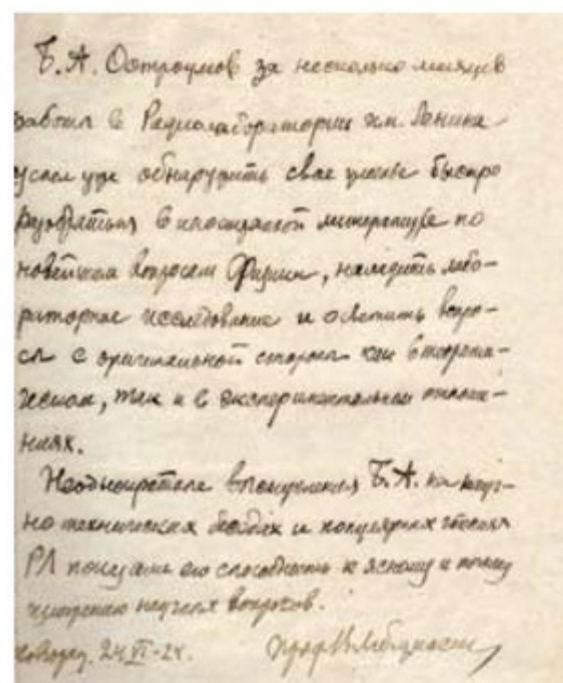 Б. А. Остроумов за несколько месяцев
работы в Радиолаборатории им. Ленина
успел уже обнаружить свое умение быстро
разобраться в иностранной литературе по
новейшим вопросам физики, наладить лабо-
раторное исследование и осветить вопро-
сы с оригинальной стороны как в теорети-
ческом, так и в экспериментальном отноше-
ниях.
Неоднократные выступления Б. А. на науч-
но технических беседах и популярных чтениях
РЛ показали его способность к ясному и
изложению научных вопросов.
24 VI-24. Проф.